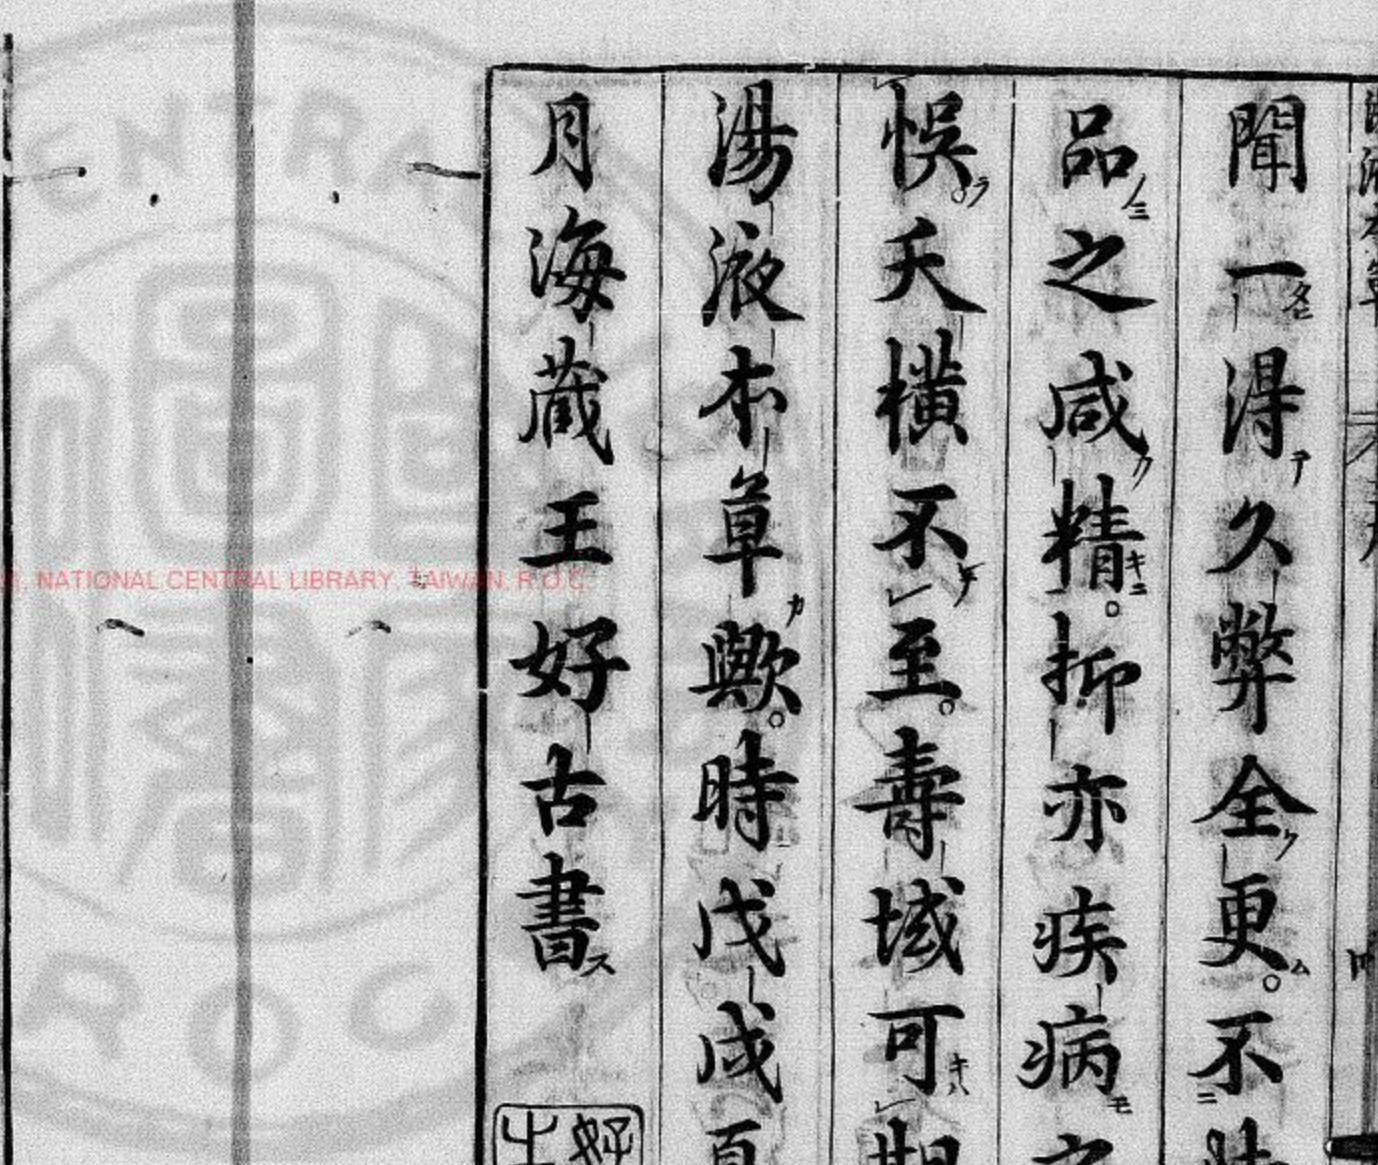 聞一得久弊全更不
品之咸精抑亦疾病
悮夭橫不至壽域可
湯液本草歟時戊戌夏
月海蔵王好古書
NATIONAL CENTRAL LIBRARY, TAIWAN, R.O.C.